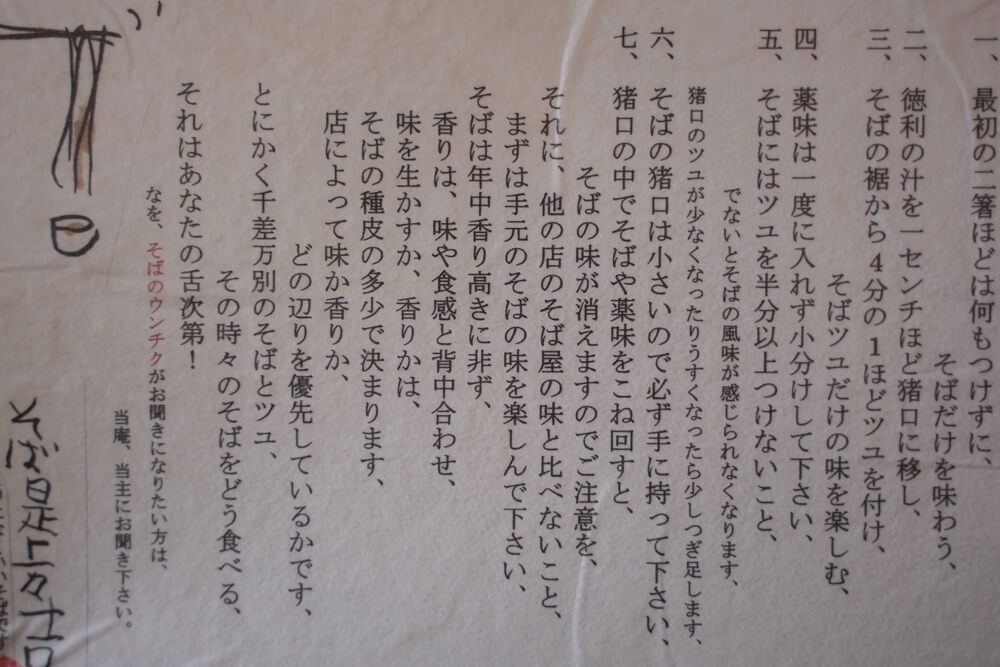 一、最初の二箸ほどは何もつけずに、
そばだけを味わう、
二、徳利の汁を一センチほど猪口に移し、
三、そばの裾から４分の１ほどツユを付け、
そばツユだけの味を楽しむ、
四、薬味は一度に入れず小分けして下さい、
五、そばにはツユを半分以上つけないこと、
でないとそばの風味が感じられなくなります、
猪口のツユが少なくなったりうすくなったら少しつぎ足します、
六、そばの猪口は小さいので必ず手に持って下さい、
七、猪口の中でそばや薬味をこね回すと、
そばの味が消えますのでご注意を、
それに、他の店のそば屋の味と比べないこと、
まずは手元のそばの味を楽しんで下さい、
そばは年中香り高きに非ず、
香りは、味や食感と背中合わせ、
味を生かすか、香りかは、
そばの種皮の多少で決まります、
店によって味か香りか、
どの辺りを優先しているかです、
とにかく千差万別のそばとツユ、
その時々のそばをどう食べる、
それはあなたの舌次第！
なを、そばのウンチクがお聞きになりたい方は、
当庵、当主にお聞き下さい。
そば是上々吉